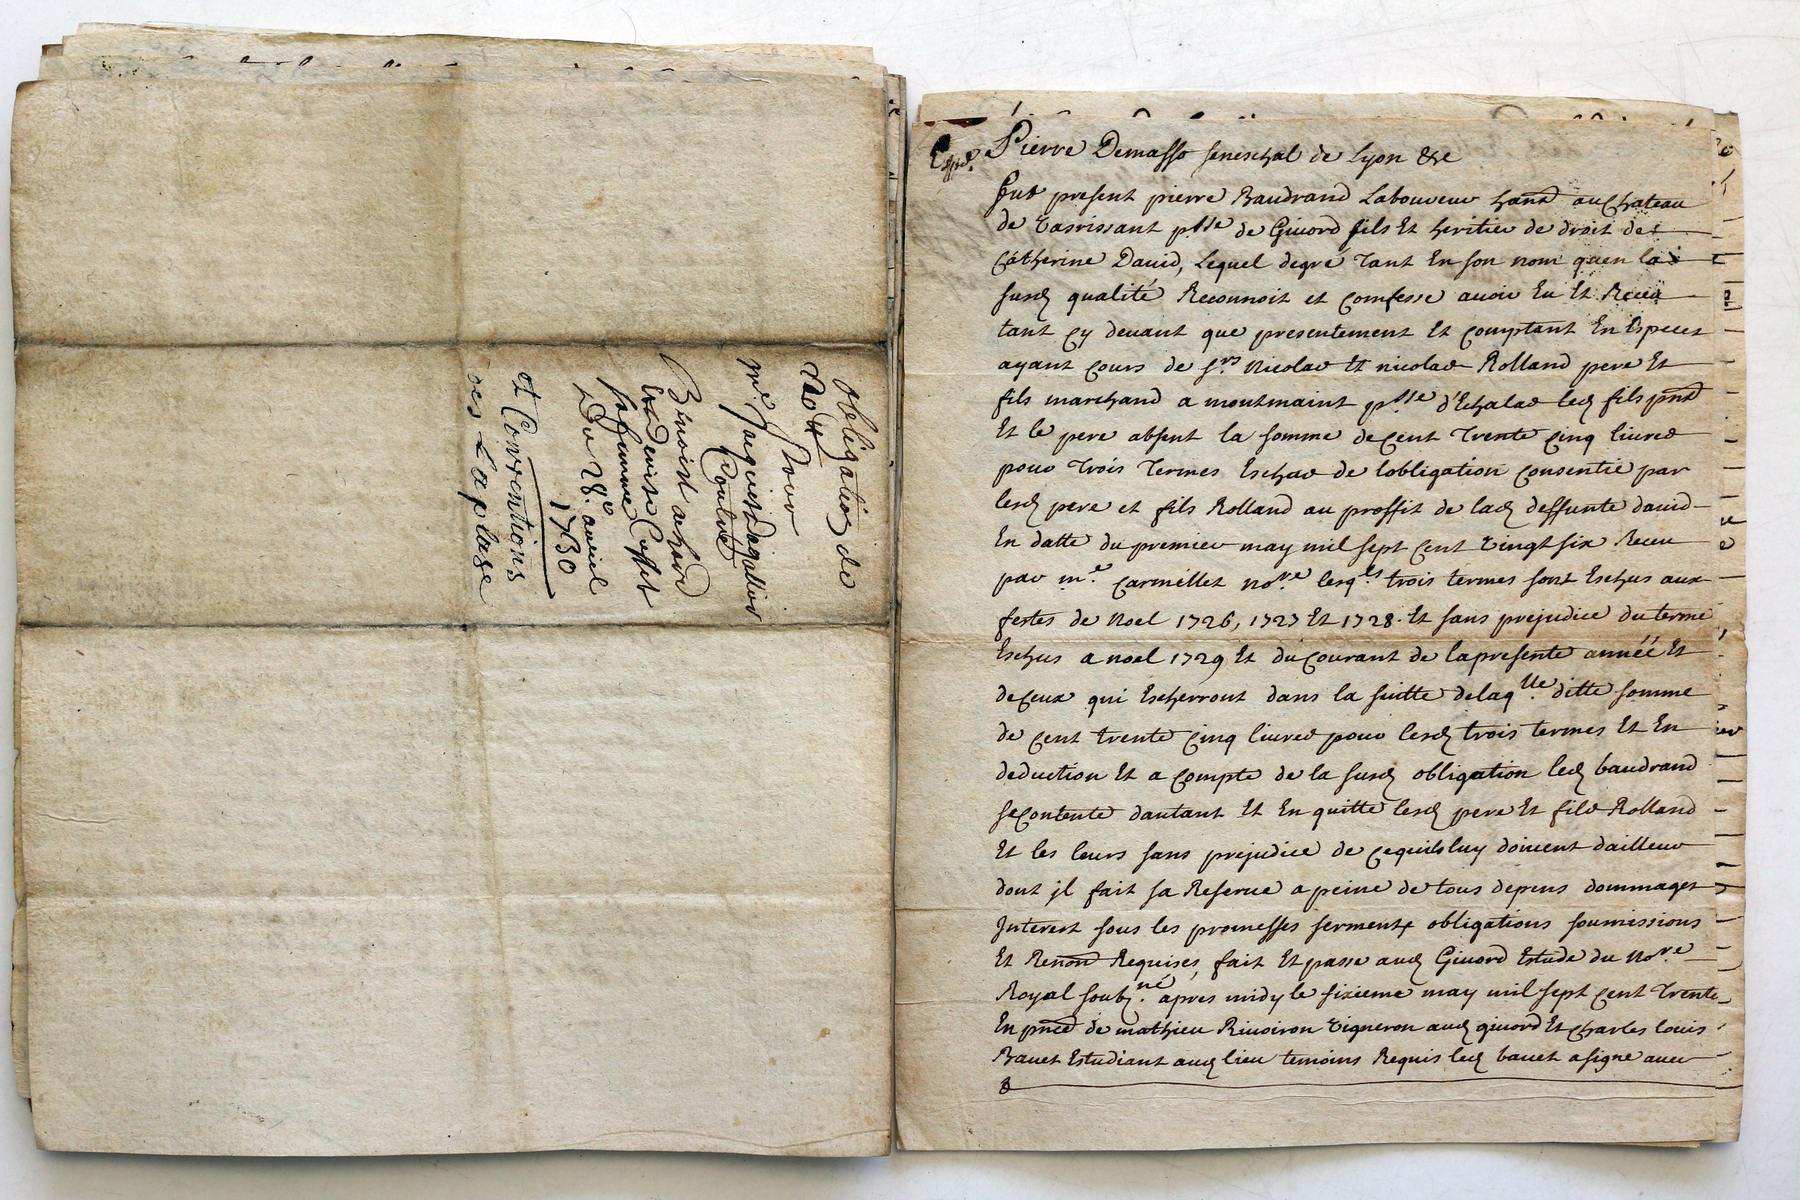 obligation de
pour
me Jacques dagallier
Contre
Benoist
et denise
sa femme
Du 28e avril
1730
et Conventions
Expedé
Pierre Demasso seneschal de Lyon &c
Fut present pierre Baudrand Laboureur hant au Chateau
de Tasrissant psse de Giuord fils Et heritier de droit de
Catherine Dauid, Lequel degré tant En son nom quen la
susd qualité Reconnoit et comfesse auoir Eu Et Receu
tant cy deuant que presentement Et comptant En Especes
ayant cours de srs Nicolas Et nicolas Rolland pere Et
fils marchand a montmaint psse d'Echalas led fils pnt
Et le pere absent la somme de cent Trente cinq liures
pour Trois Termes Eschus de lobligation consentie par
lesd pere et fils Rolland au proffit de lad deffunte dauid
En datte du premier may mil sept cent vingt six Receu
par me Carmellet nore lesqls trois termes sont Eschus aux
festes de Noel 1726, 1727 Et 1728. Et sans prejudice du terme
Eschus a noel 1729 Et du Courant de lapresente année Et
deceux qui Escherront dans la suitte delaqlle ditte somme
de cent trente cinq liures pour lesd trois termes Et En
deduction Et a compte de la susd obligation led baudrand
se contente dautant Et En quitte lesd pere Et fils Rolland
Et les leurs sans prejudice de cequilsluy doiuent dailleur
dont jl fait sa Reserue a peine de tous depens dommages
Interest sous les promesses serments obligations soumissions
Et Renon Requises, fait Et passe aud Giuord Estude du Nore
Royal soubzné apres midy le sixieme may mil sept cent Trente
En pnce de mathieu Riuoiron vigneron aud giuord Et Charles louis
Bauet Estudiant aud lieu temoins Requis led bauet a signe auec